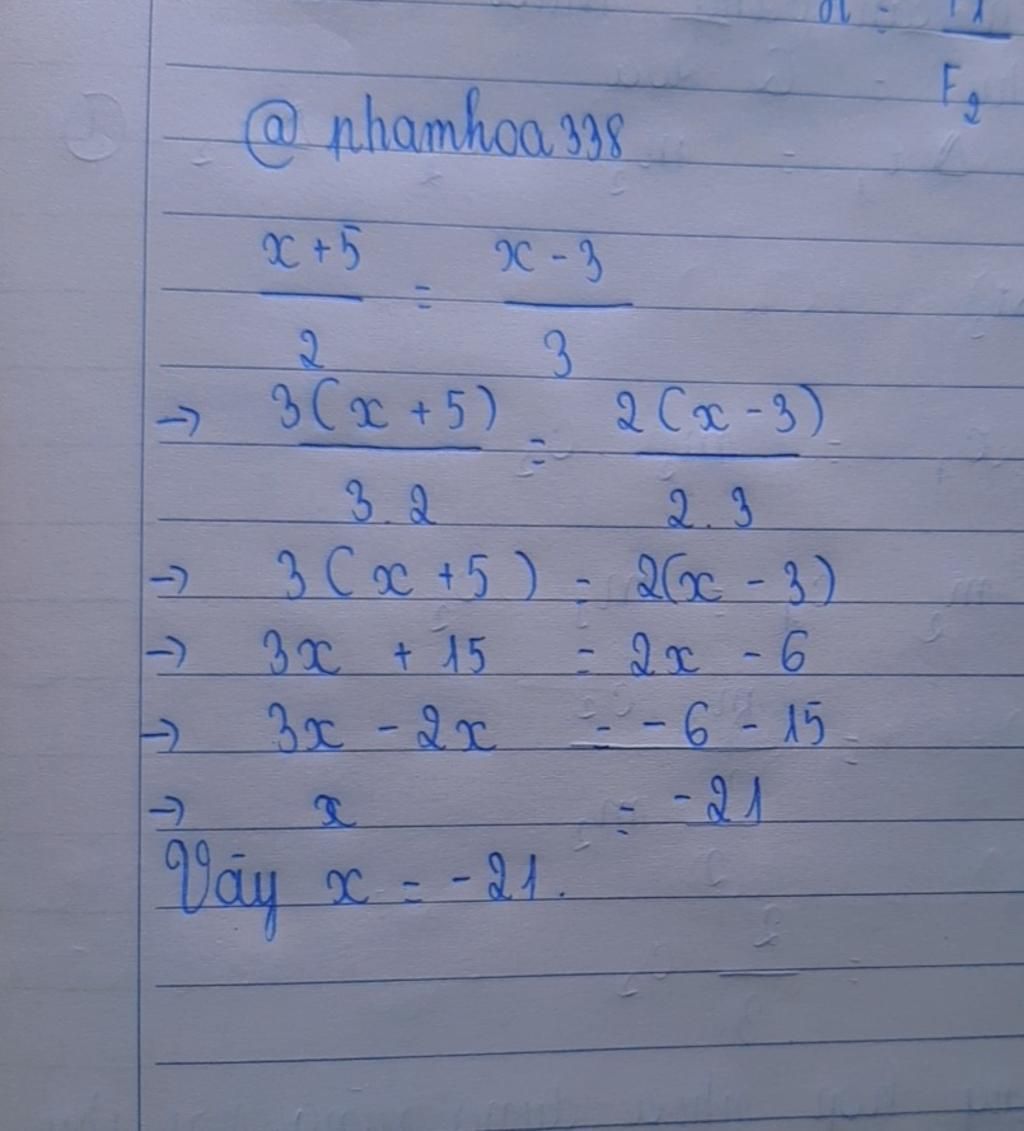 F₂
@ nhamhoa338
x + 5 / 2 = x - 3 / 3
→ 3(x + 5) / 3.2 = 2(x - 3) / 2.3
→ 3(x + 5) = 2(x - 3)
→ 3x + 15 = 2x - 6
→ 3x - 2x = - 6 - 15
→ x = -21
Vậy x = -21.